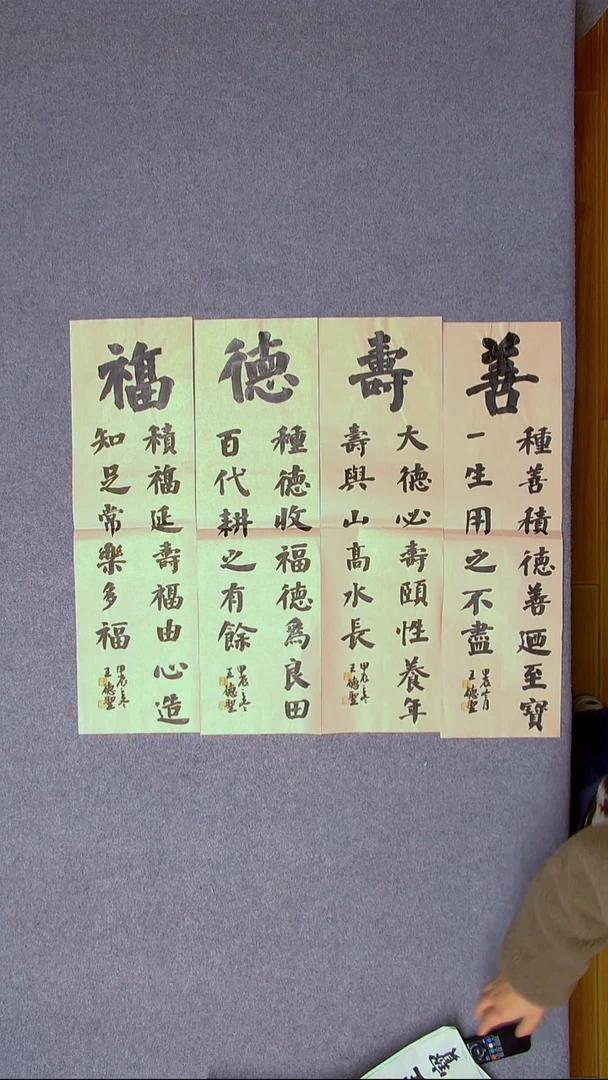 善
種善積德善迺至寶
一生用之不盡
甲辰十月
王德聖
壽
大德必壽頤性養年
壽與山高水長
甲辰之冬
王德聖
德
種德收福德爲良田
百代耕之有餘
甲辰之冬
王德聖
福
積福延壽福由心造
知足常樂多福
甲辰之冬
王德聖